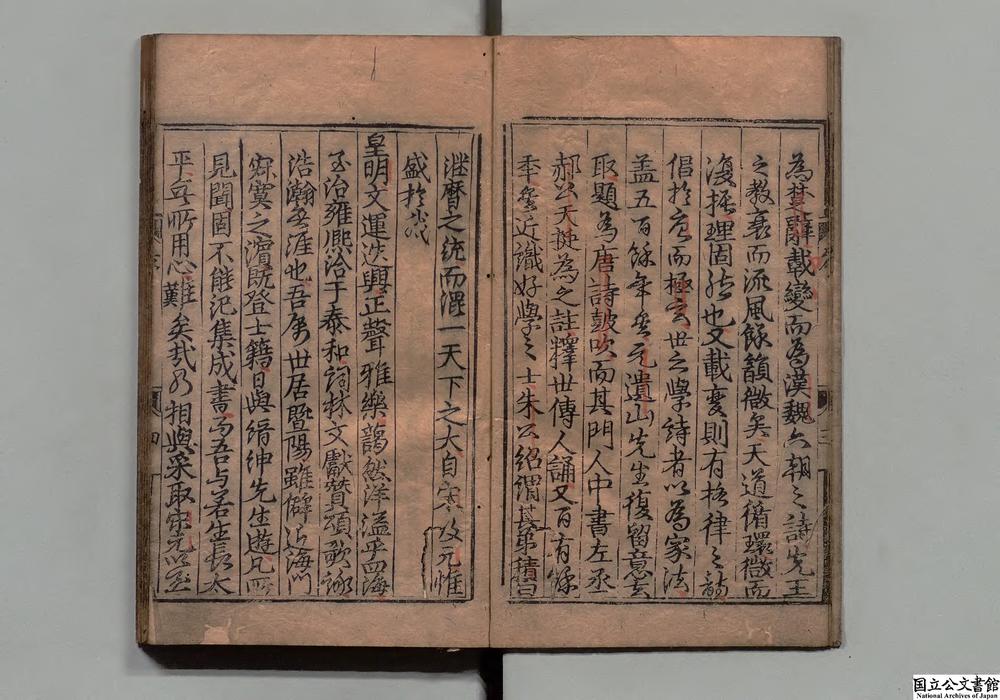 為楚辭載變而為漢魏六朝之詩先王
之教衰而流風餘韻微矣天道循環微而
復振理固然也又載變則有格律之韵
倡於唐而極宏世之學詩者以為家法
盖五百餘年矣元遺山先生復留意其
取題為唐詩鼓吹而其門人中書左丞
郝公天挺為之註釋世傳人誦又百有餘
季矣近識好學之士朱公紹謂其弟積曰
繼曆之統而混一天下之大自宋及元惟
盛於
皇明文運迭興正聲雅樂藹然洋溢乎四海
至治雍熙洽于泰和詞林文獻賛頌歌詠
浩瀚無涯也吾属世居暨陽雖僻近海门
寂寞之濵既登士籍日與縉紳先生遊凡所
見聞固不能汜集成書而吾与若生長太
平無所用心難矣哉乃相與采取宋元以至
国立公文書館
National Archives of Japan